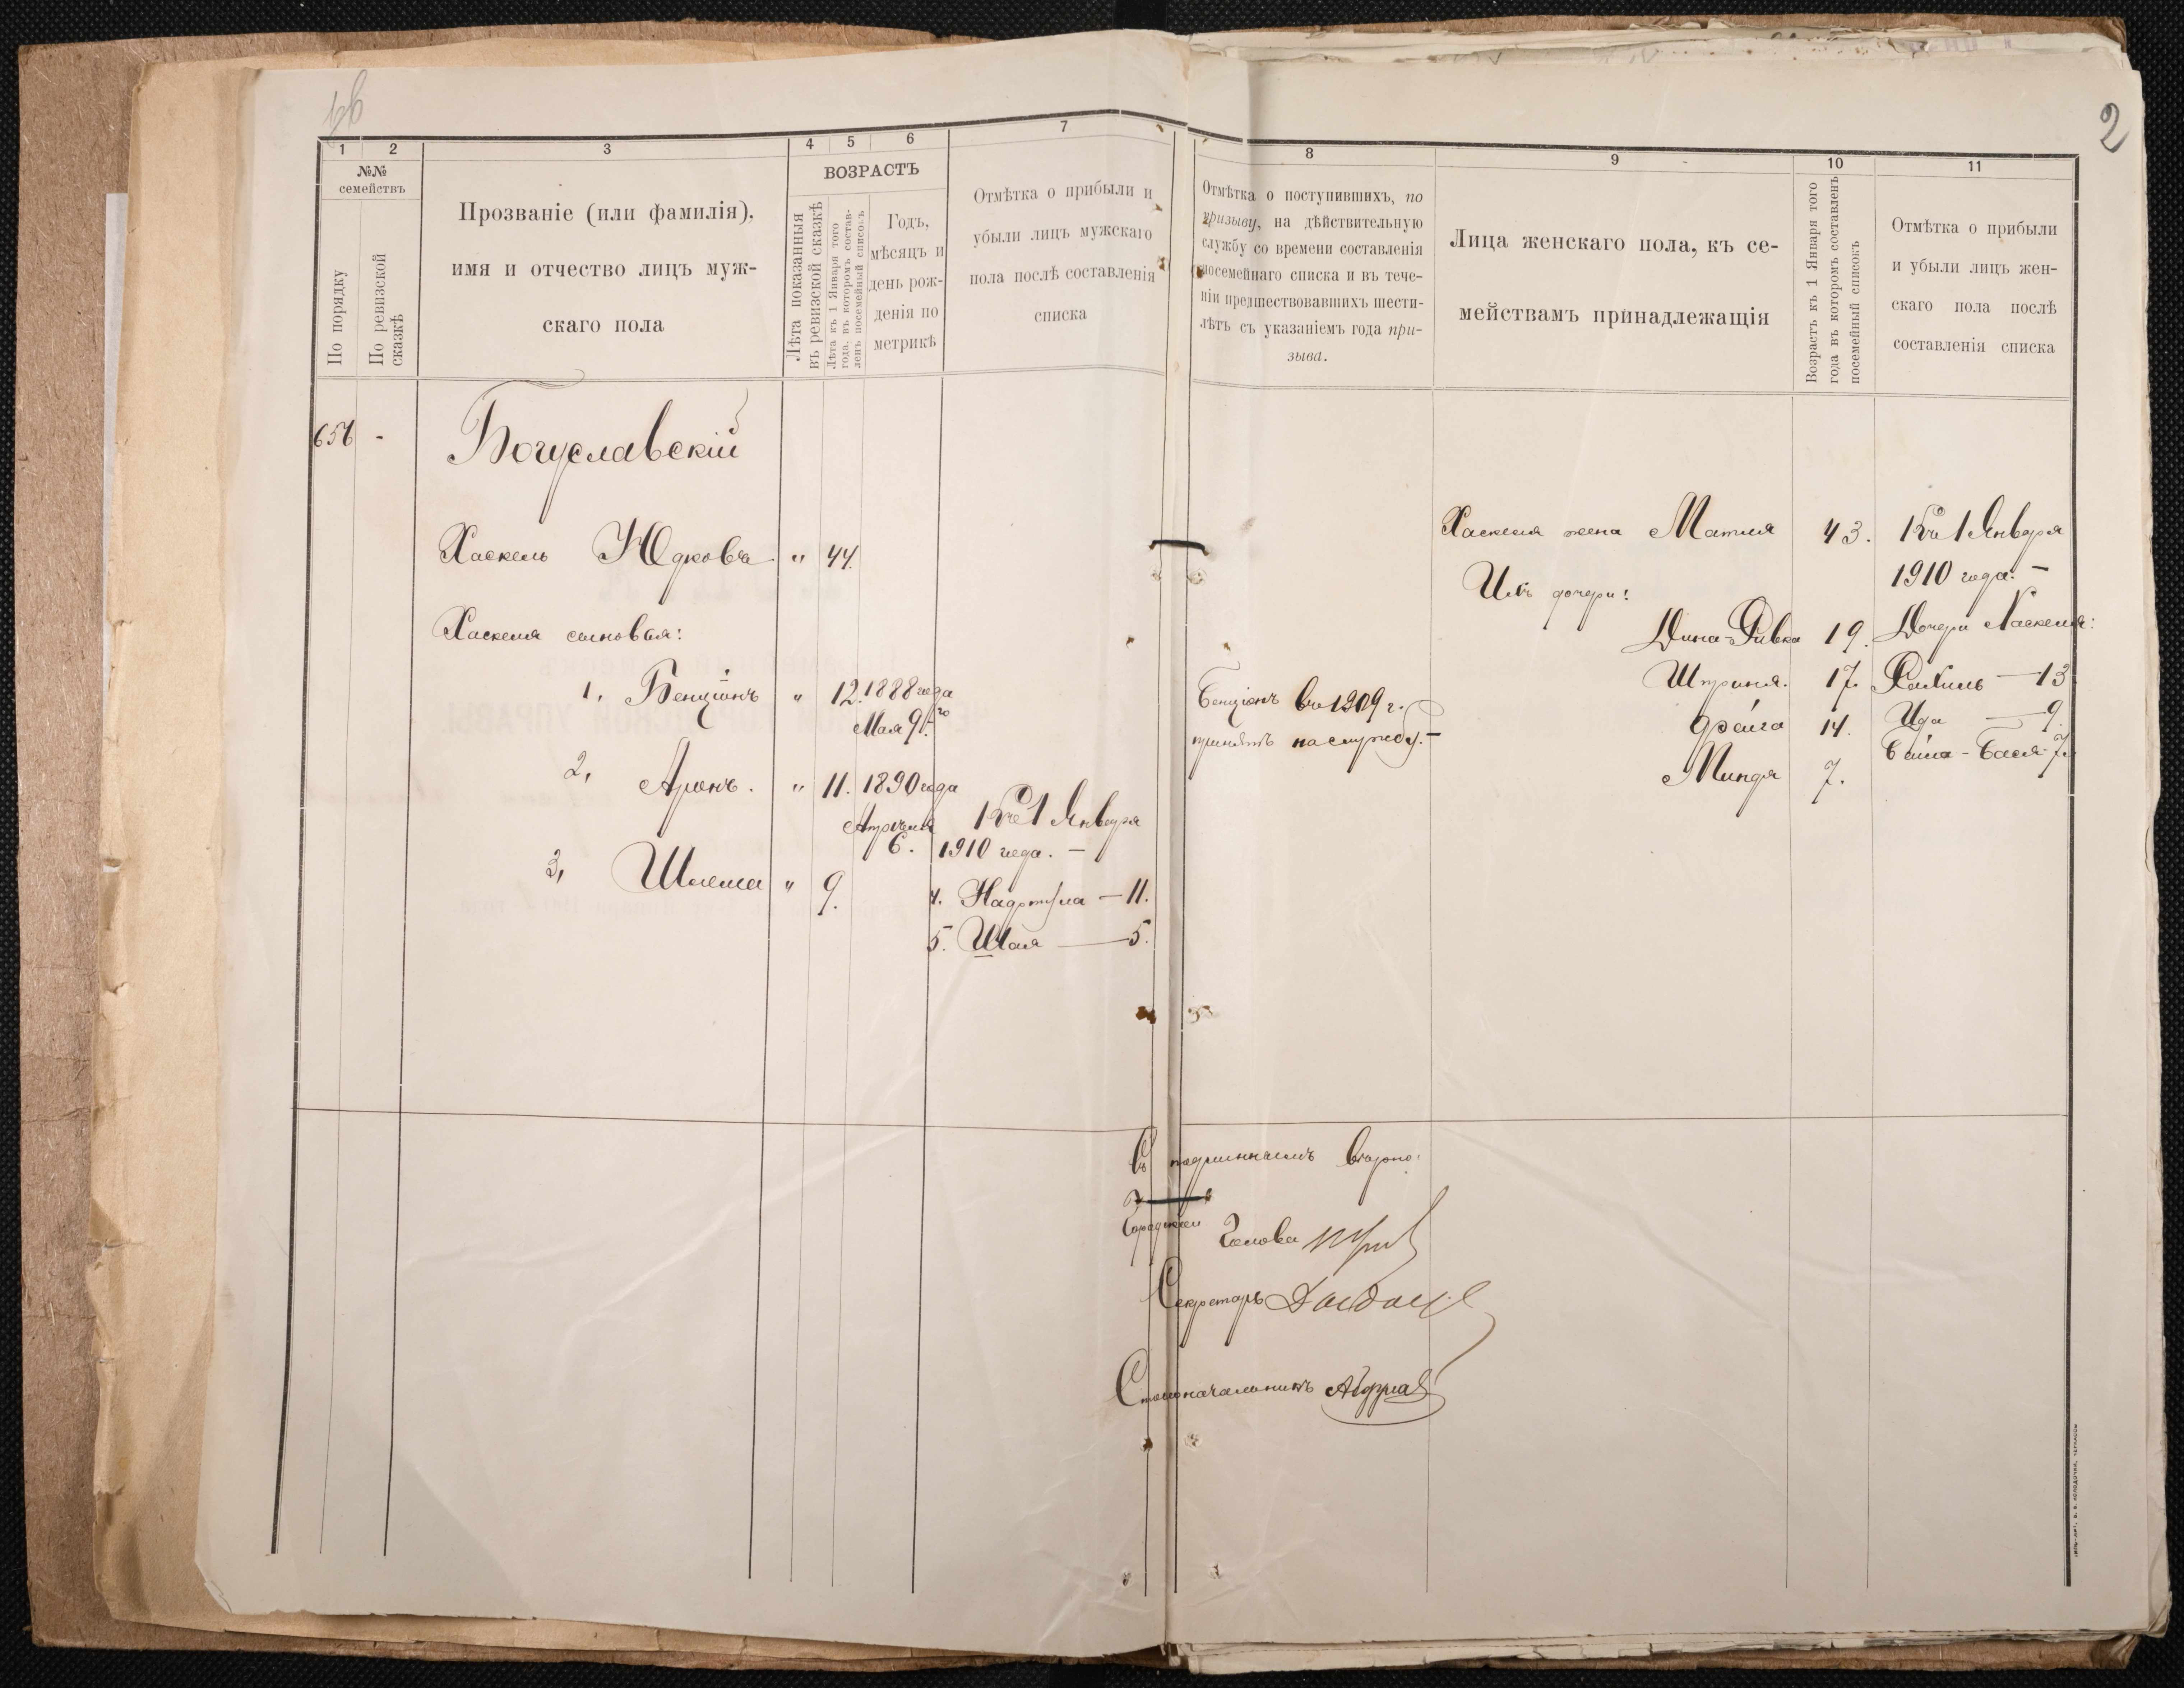 2
1
2
3
4
5
6
7
№№
семействъ
По порядку
По ревизской
сказкѣ
Прозваніе (или фамилія),
имя и отчество лицъ муж-
скаго пола
ВОЗРАСТЪ
Лѣта показанныя
въ ревизской сказкѣ
Лѣта къ 1 Января того
года, въ которомъ состав-
ленъ посемейный списокъ
Годъ,
мѣсяцъ и
день рож-
денія по
метрикѣ
Отмѣтка о прибыли и
убыли лицъ мужскаго
пола послѣ составленія
списка
656 -
Богуславскій
Хаскель Юдковъ " 44.
Хаскеля сыновья:
1, Бенціонъ " 12. 1888 года
Мая 9.го
2, Аронъ. " 11. 1890 года
Апрѣля
6.
3, Шлема " 9.
Къ 1 Января
1910 года. —
4. Надгтула — 11.
5. Шая — 5.
8
9
10
11
Отмѣтка о поступившихъ, по
призыву, на дѣйствительную
службу со времени составленія
посемейнаго списка и въ тече-
ніи предшествовавшихъ шести-
лѣтъ съ указаніемъ года при-
зыва.
Лица женскаго пола, къ се-
мействамъ принадлежащія
Возрастъ къ 1 Января того
года въ которомъ составленъ
посемейный списокъ
Отмѣтка о прибыли
и убыли лицъ жен-
скаго пола послѣ
составленія списка
Бенціонъ въ 1909 г.
принятъ на службу. —
Хаскеля жена Матля 43.
Ихъ дочери:
Дина-Ривка 19.
Шприня. 17.
Фрейга 14.
Миндя 7.
Къ 1 Января
1910 года. —
Дочери Хаскеля:
Рахиль — 13
Ида — 9.
Бейла-Бася 7.
Съ подлиннымъ вѣрно:
Городской Голова
Секретарь
Столоначальникъ